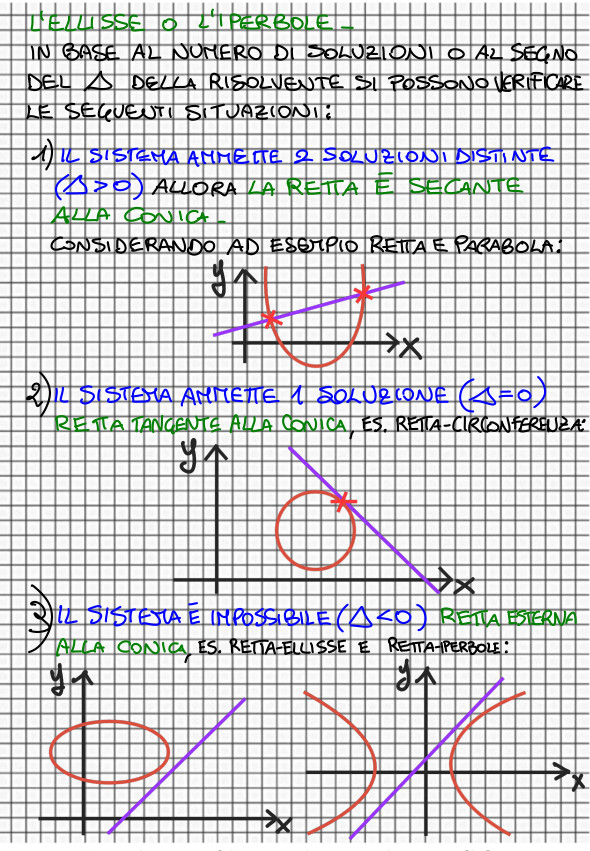 L'ELLISSE O L'IPERBOLE_
IN BASE AL NUMERO DI SOLUZIONI O AL SEGNO
DEL Δ DELLA RISOLVENTE SI POSSONO VERIFICARE
LE SEGUENTI SITUAZIONI:
1) IL SISTEMA AMMETTE 2 SOLUZIONI DISTINTE
(Δ>0) ALLORA LA RETTA È SECANTE
ALLA CONICA_
CONSIDERANDO AD ESEMPIO RETTA E PARABOLA:
y
x
2) IL SISTEMA AMMETTE 1 SOLUZIONE (Δ=0)
RETTA TANGENTE ALLA CONICA, ES. RETTA-CIRCONFERENZA:
y
x
3) IL SISTEMA È IMPOSSIBILE (Δ<0) RETTA ESTERNA
ALLA CONICA, ES. RETTA-ELLISSE E RETTA-IPERBOLE:
y
x
y
x